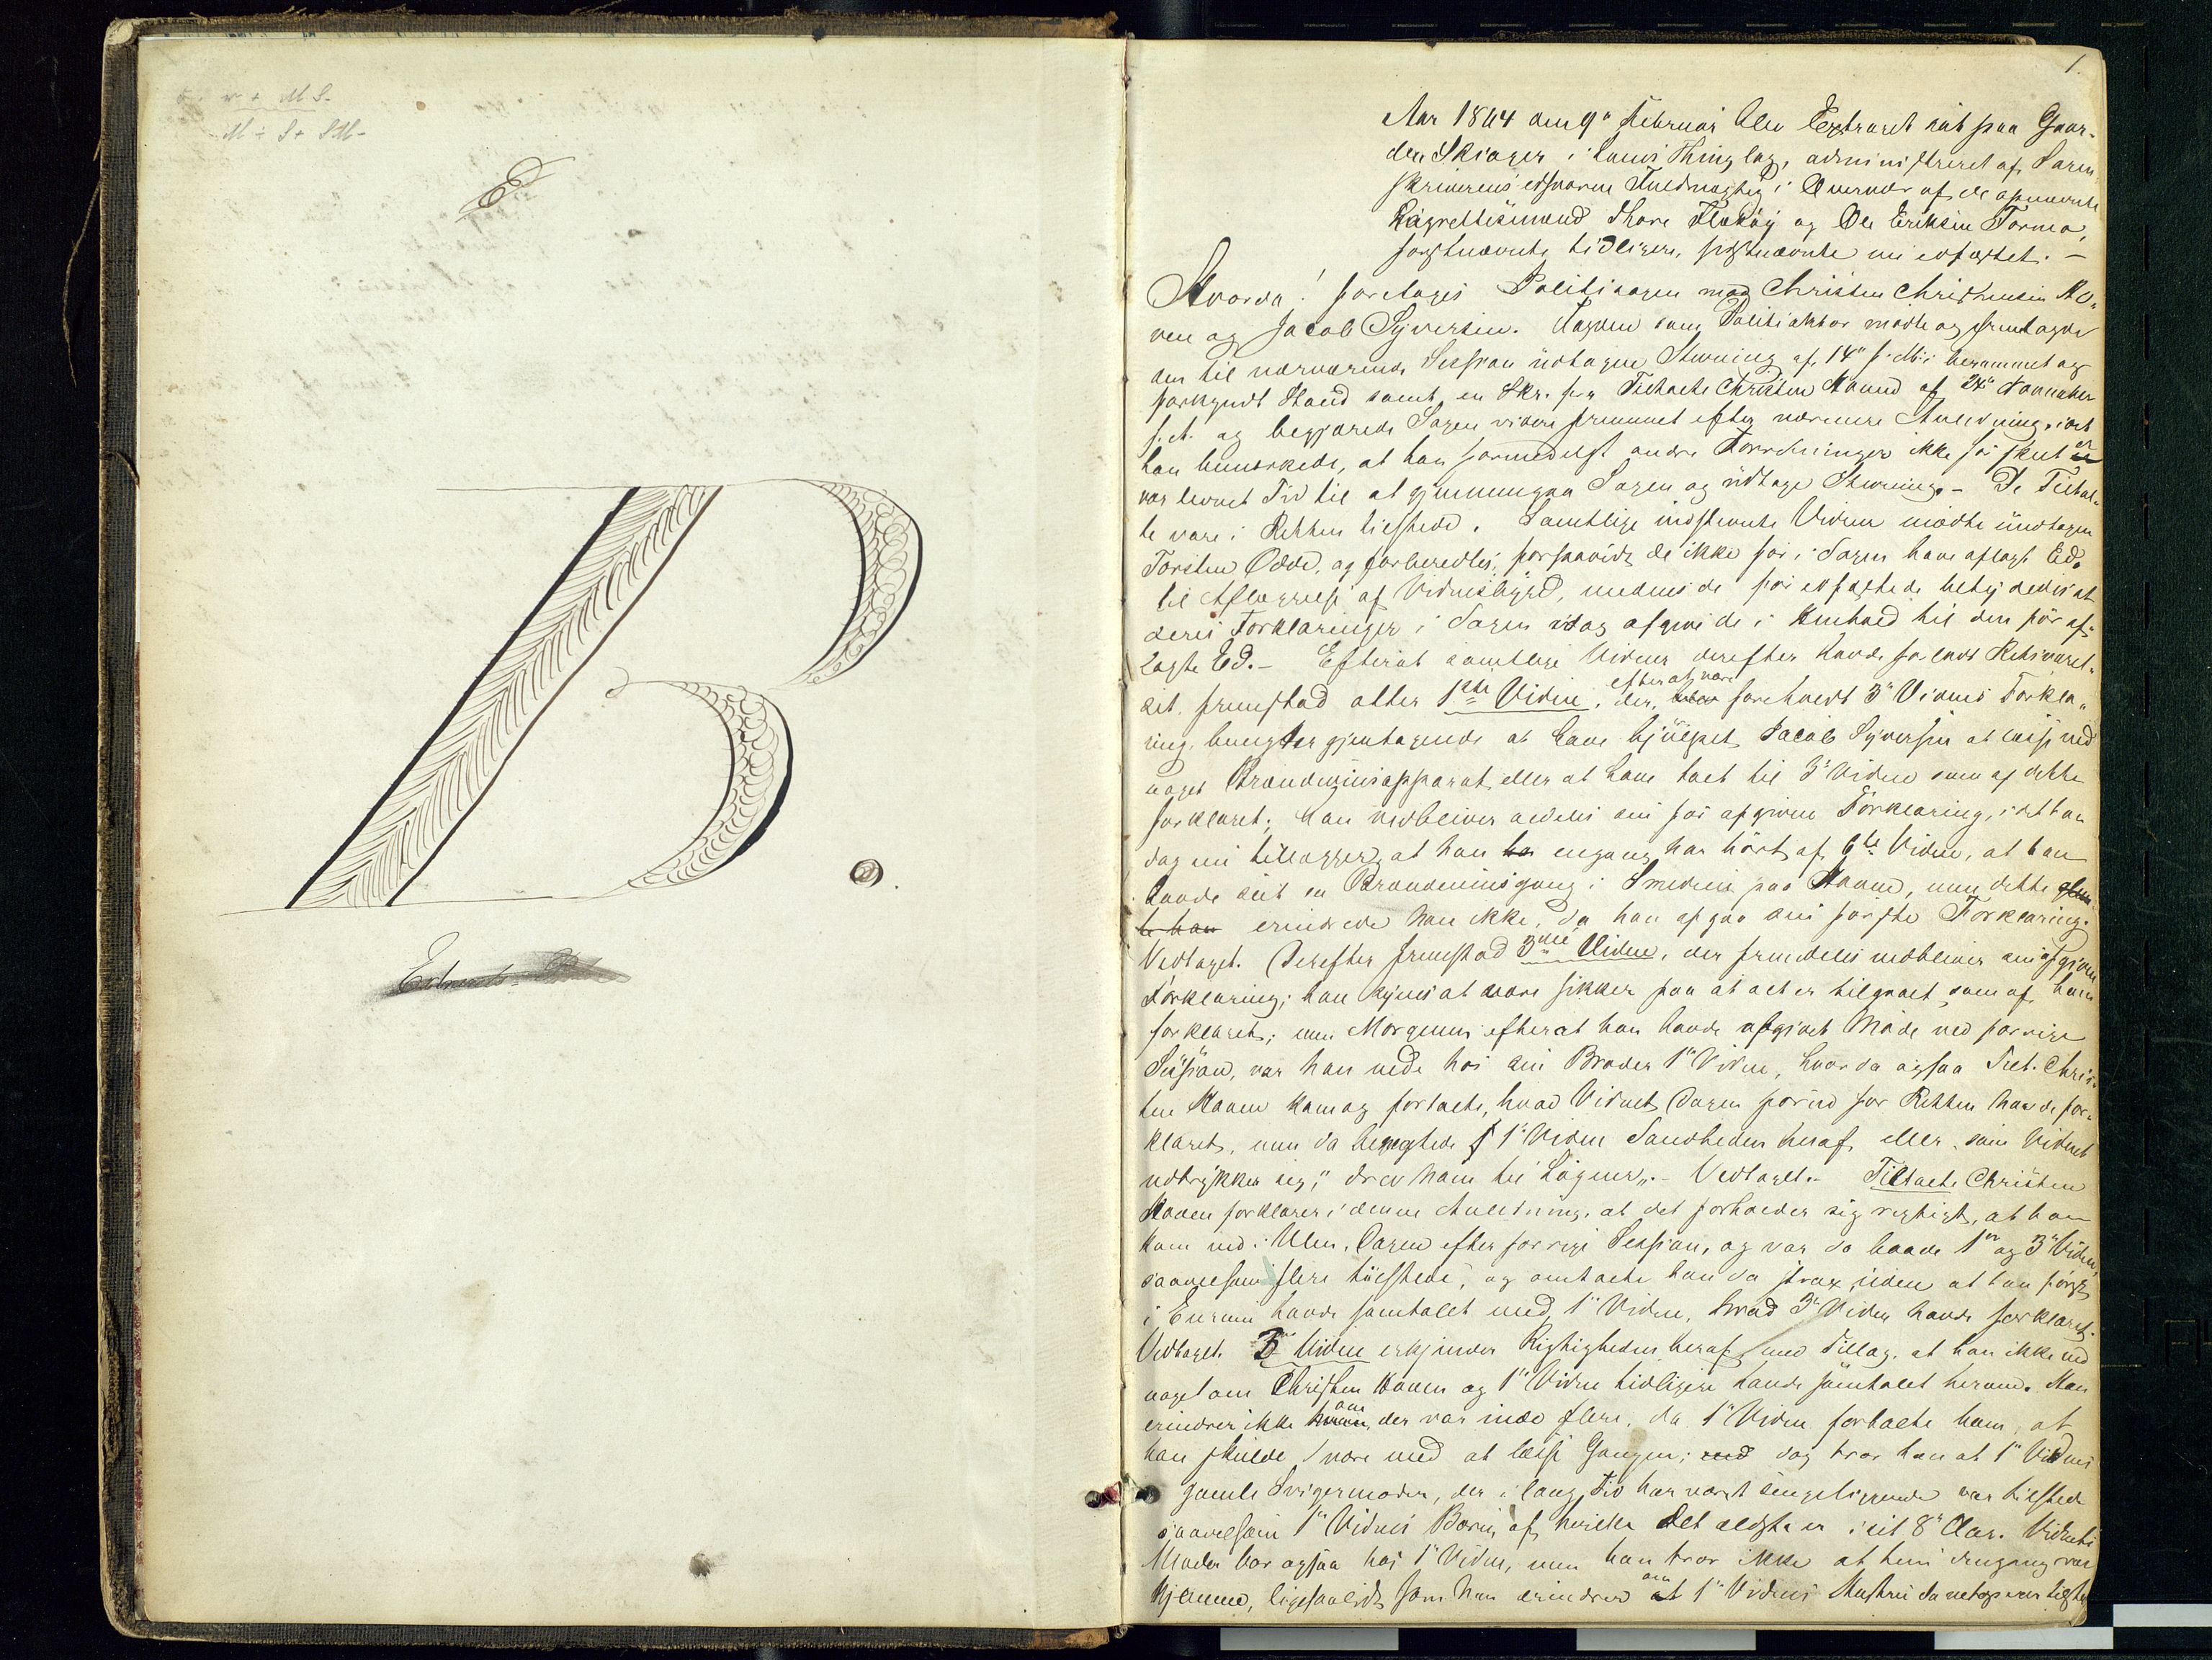 r + M S.
M ÷ S + SM-
E
B.
1.
Aar 1864 den 9de Februar blev Extraret sat paa Gaar-
den Skiager i Loms Thinglag, administreret af Soren-
skriverens edsvorne Fuldmægtig i Overvær af de opnævnte
Lagrettesmænd Thore Flekøy og Ole Eriksen Formo,
førstnævnte tidligere, sidstnævnte nu edfæstet. –
Hvorda! foretages Politisagen mod Christen Christensen Ho-
ven og Jacob Syversen. som Politiaktor mødte og fremlagde
den til nærværende Session udtagne Stevning af 14de f. M. i berammet og
forkyndt Stand samt en Skr. fra Tiltalte Christen af 24de November
f. A. og begjærede Sagen videre fremmet efter nærmere Anledning, idet
han bemærkede, at han formedelst andre Forretninger ikke før skeet er
var levnet Tid til at gjennemgaa Sagen og udtage Stevning. – De Tiltal-
te vare i Retten tilstede. Samtlige indstevnte Vidner mødte undtagen
Torsten Odde, og forberedtes, forsaavidt de ikke før i Sagen have aflagt Ed,
til Aflæggelse af Vidnesbyrd, medens de før edfæstede betydedes at
deres Forklaringer i Sagen idag afgives de i Henhold til den før af-
lagte Ed. – Efterat samtlige Vidner derefter havde forladt Retsværel-
set, fremstod atter 1ste Vidne, der, efter at være foreholdt 3de Vidnes Forkla-
ring, benægter gjentagende at have hjulpet Jacob Syversen at læsse med
noget Brændeviinsapparat eller at have talt til 3die Vidne som af dette
forklaret; han vedbliver aldeles sin før afgivne Forklaring, idet han
dog nu tillægger, at han har engang har hørt af 6te Vidne, at han
havde seet en Brændeviinsgang i Smedien paa, men dette glem-
te han erindrede han ikke, da han afgav sin første Forklaring.
Vedtaget. Derefter fremstod 3die Vidne, der fremdeles vedbliver sin afgivne
Forklaring; han synes at være sikker paa at det er tilgaaet, som af ham
forklaret; men Morgenen efterat han havde afgivet Møde ved forrige
Session, var han nede hos sin Broder 1ste Vidne, hvor da ogsaa Tilt. Chris-
ten kom og fortalte, hvad Vidnet Dagen forud for Retten havde for-
klaret, men da benægtede 1ste Vidne Sandheden heraf, eller, som Vidnet
udtrykker sig, "drev ham til Løgner". – Vedtaget. – Tiltalte Christen
Hoven forklarer i denne Anledning, at det forholder sig rigtigt, at han
kom ned i Ulen, Dagen efter forrige Session, og var da baade 1ste og 3de Vidne,
saavelsom flere tilstede, og omtalte han da strax, uden at han først
i Eenrum havde samtalet med 1ste Vidne, hvad 3de Vidne havde forklaret.
Vedtaget. 3de Vidne erkjender Rigtigheden heraf med Tillæg, at han ikke ved
noget om Christen Hoven og 1ste Vidne tidligere havde samtalet herom. Han
erindrer ikke om der var inde flere, da 1ste Vidne fortalte ham, at
han skulde være med at læsse Gangen; dog tror han at 1ste Vidnes
gamle Svigermoder, der i lang Tid har været sengeliggende var tilstede
saavelsom 1ste Vidnes Børn, af hvilke det ældste er i sit 8de Aar. Vidnets
Moder bor ogsaa hos 1ste Vidne, men han tror ikke at hun dengang var
hjemme, ligesaalidt som han erindrer om 1ste Vidnes Hustru da netop var tilstede